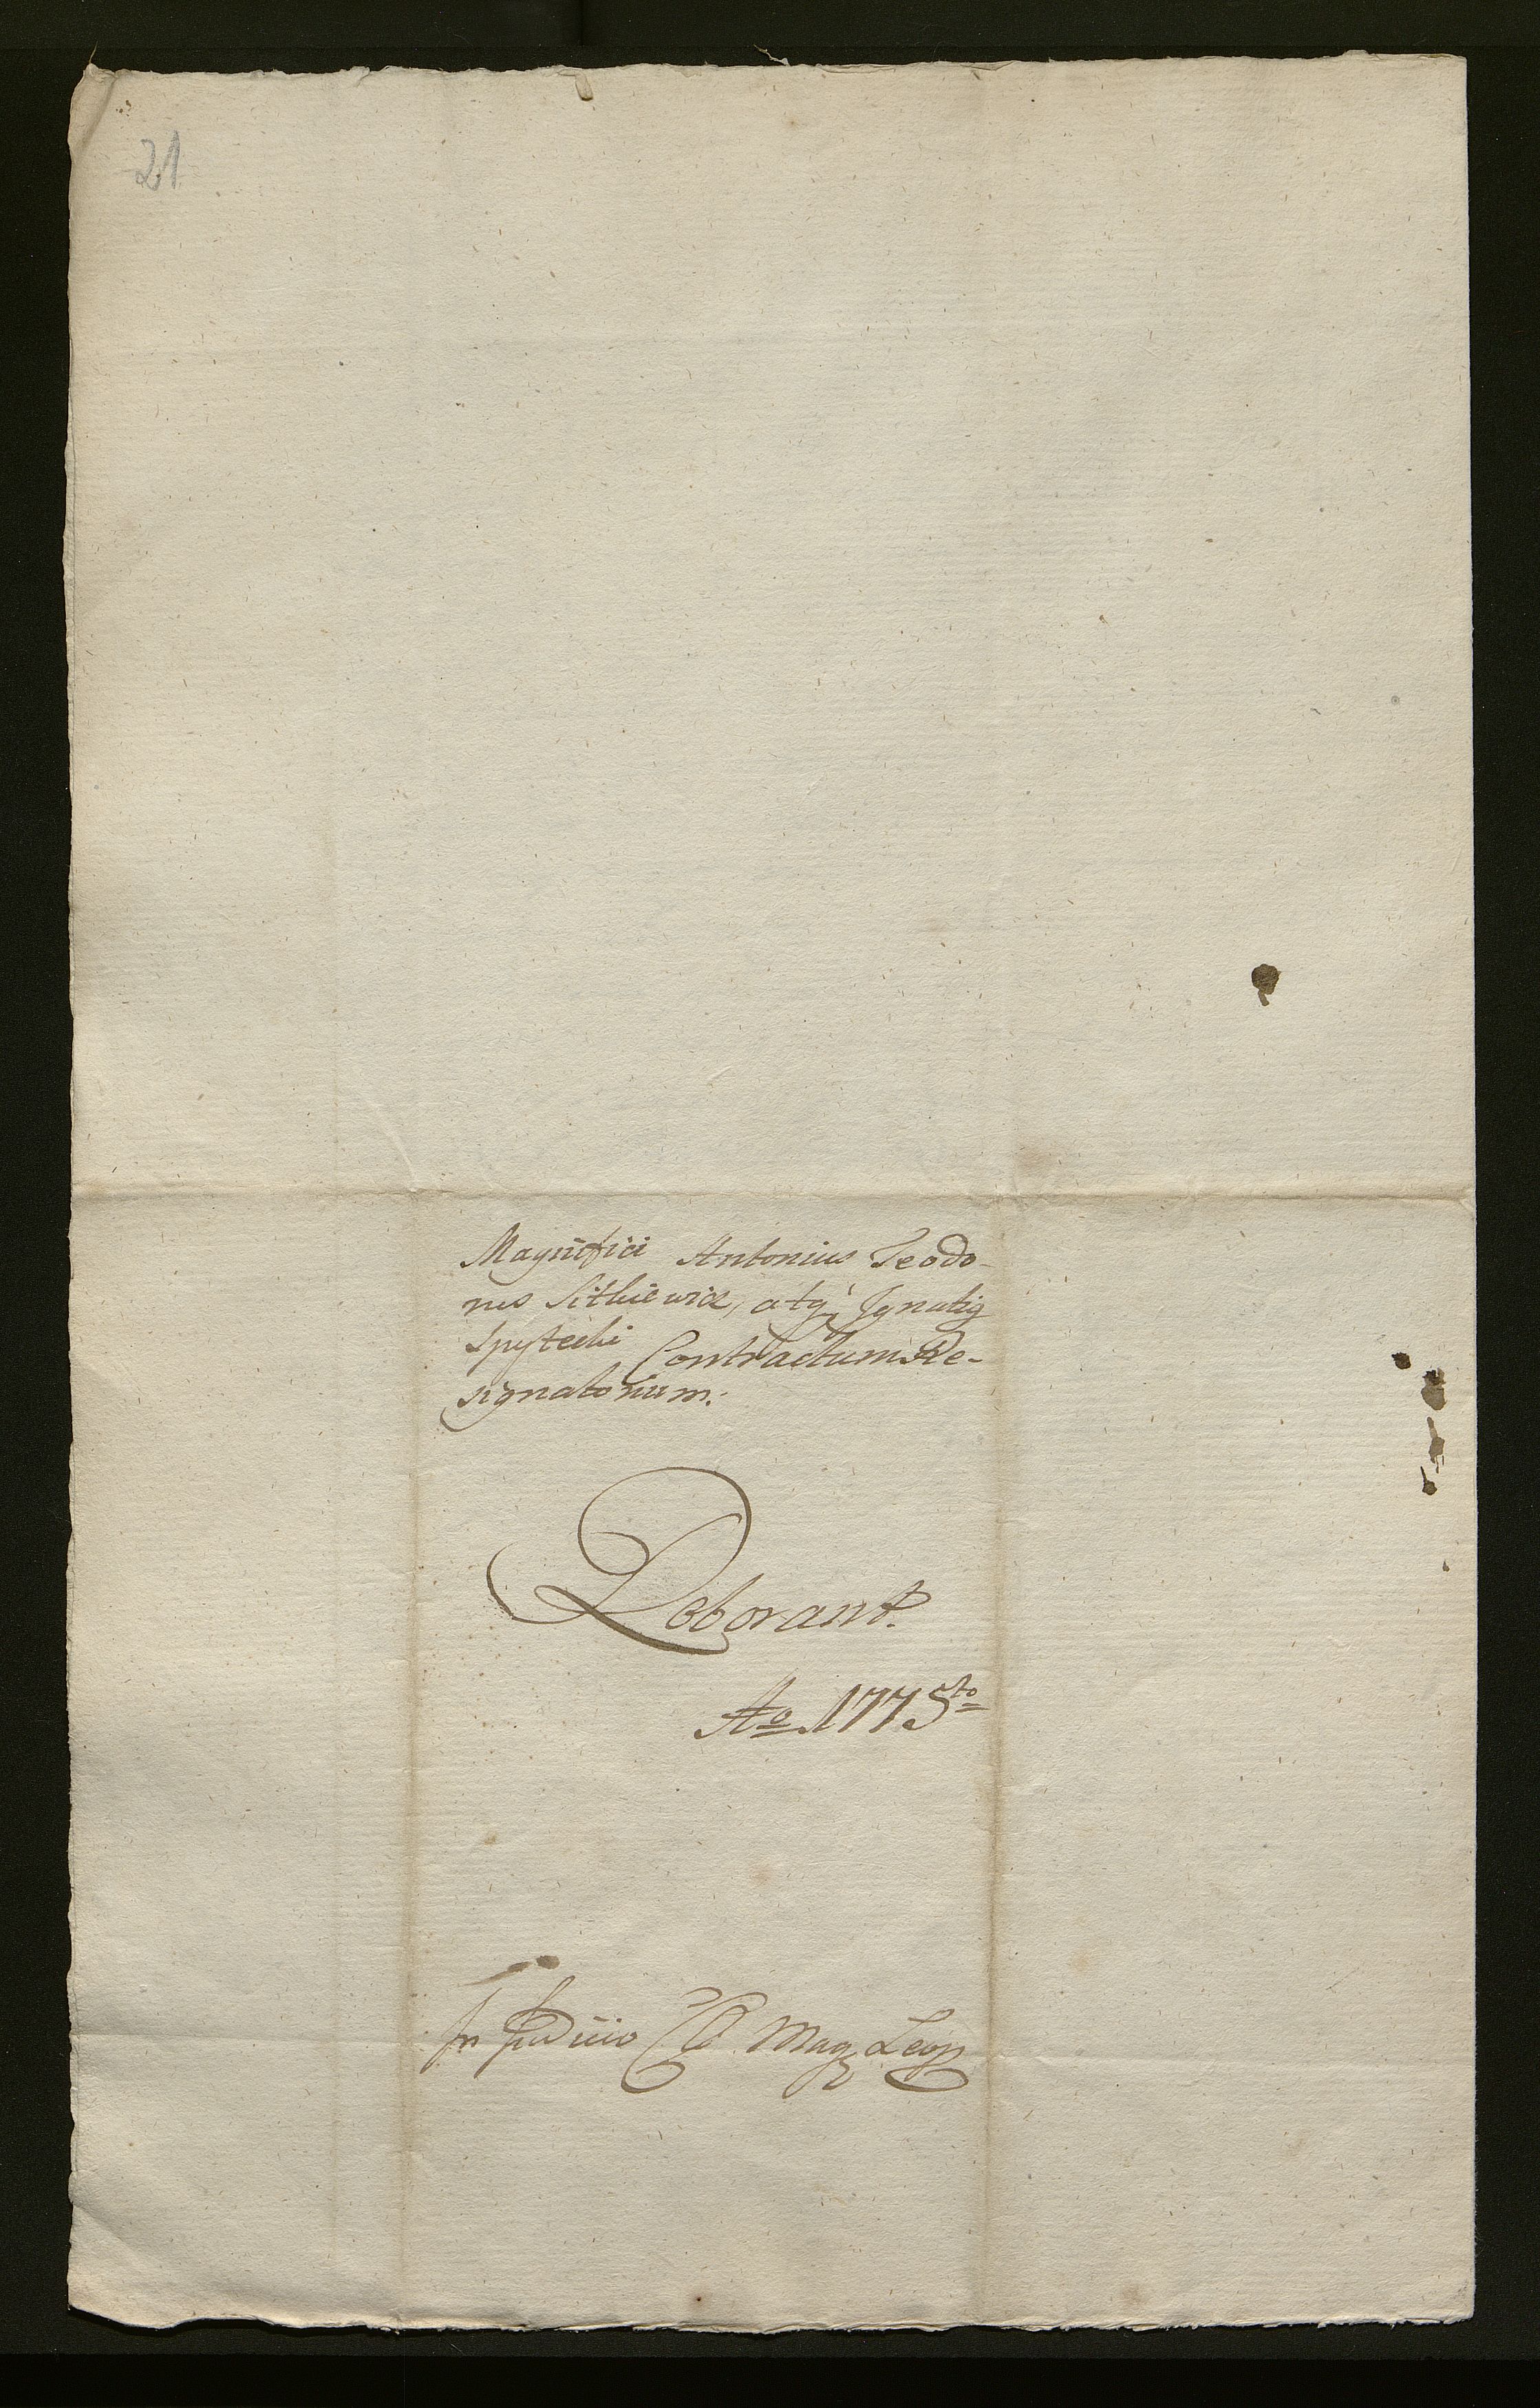 21
Magnifici Antonius Teodo-
rus Sitkiewicz, atq; Ignatig
Spytecki Contractum Re-
signatorium.
Roborant.
Ao 1775to
In Judicio Magz Leop